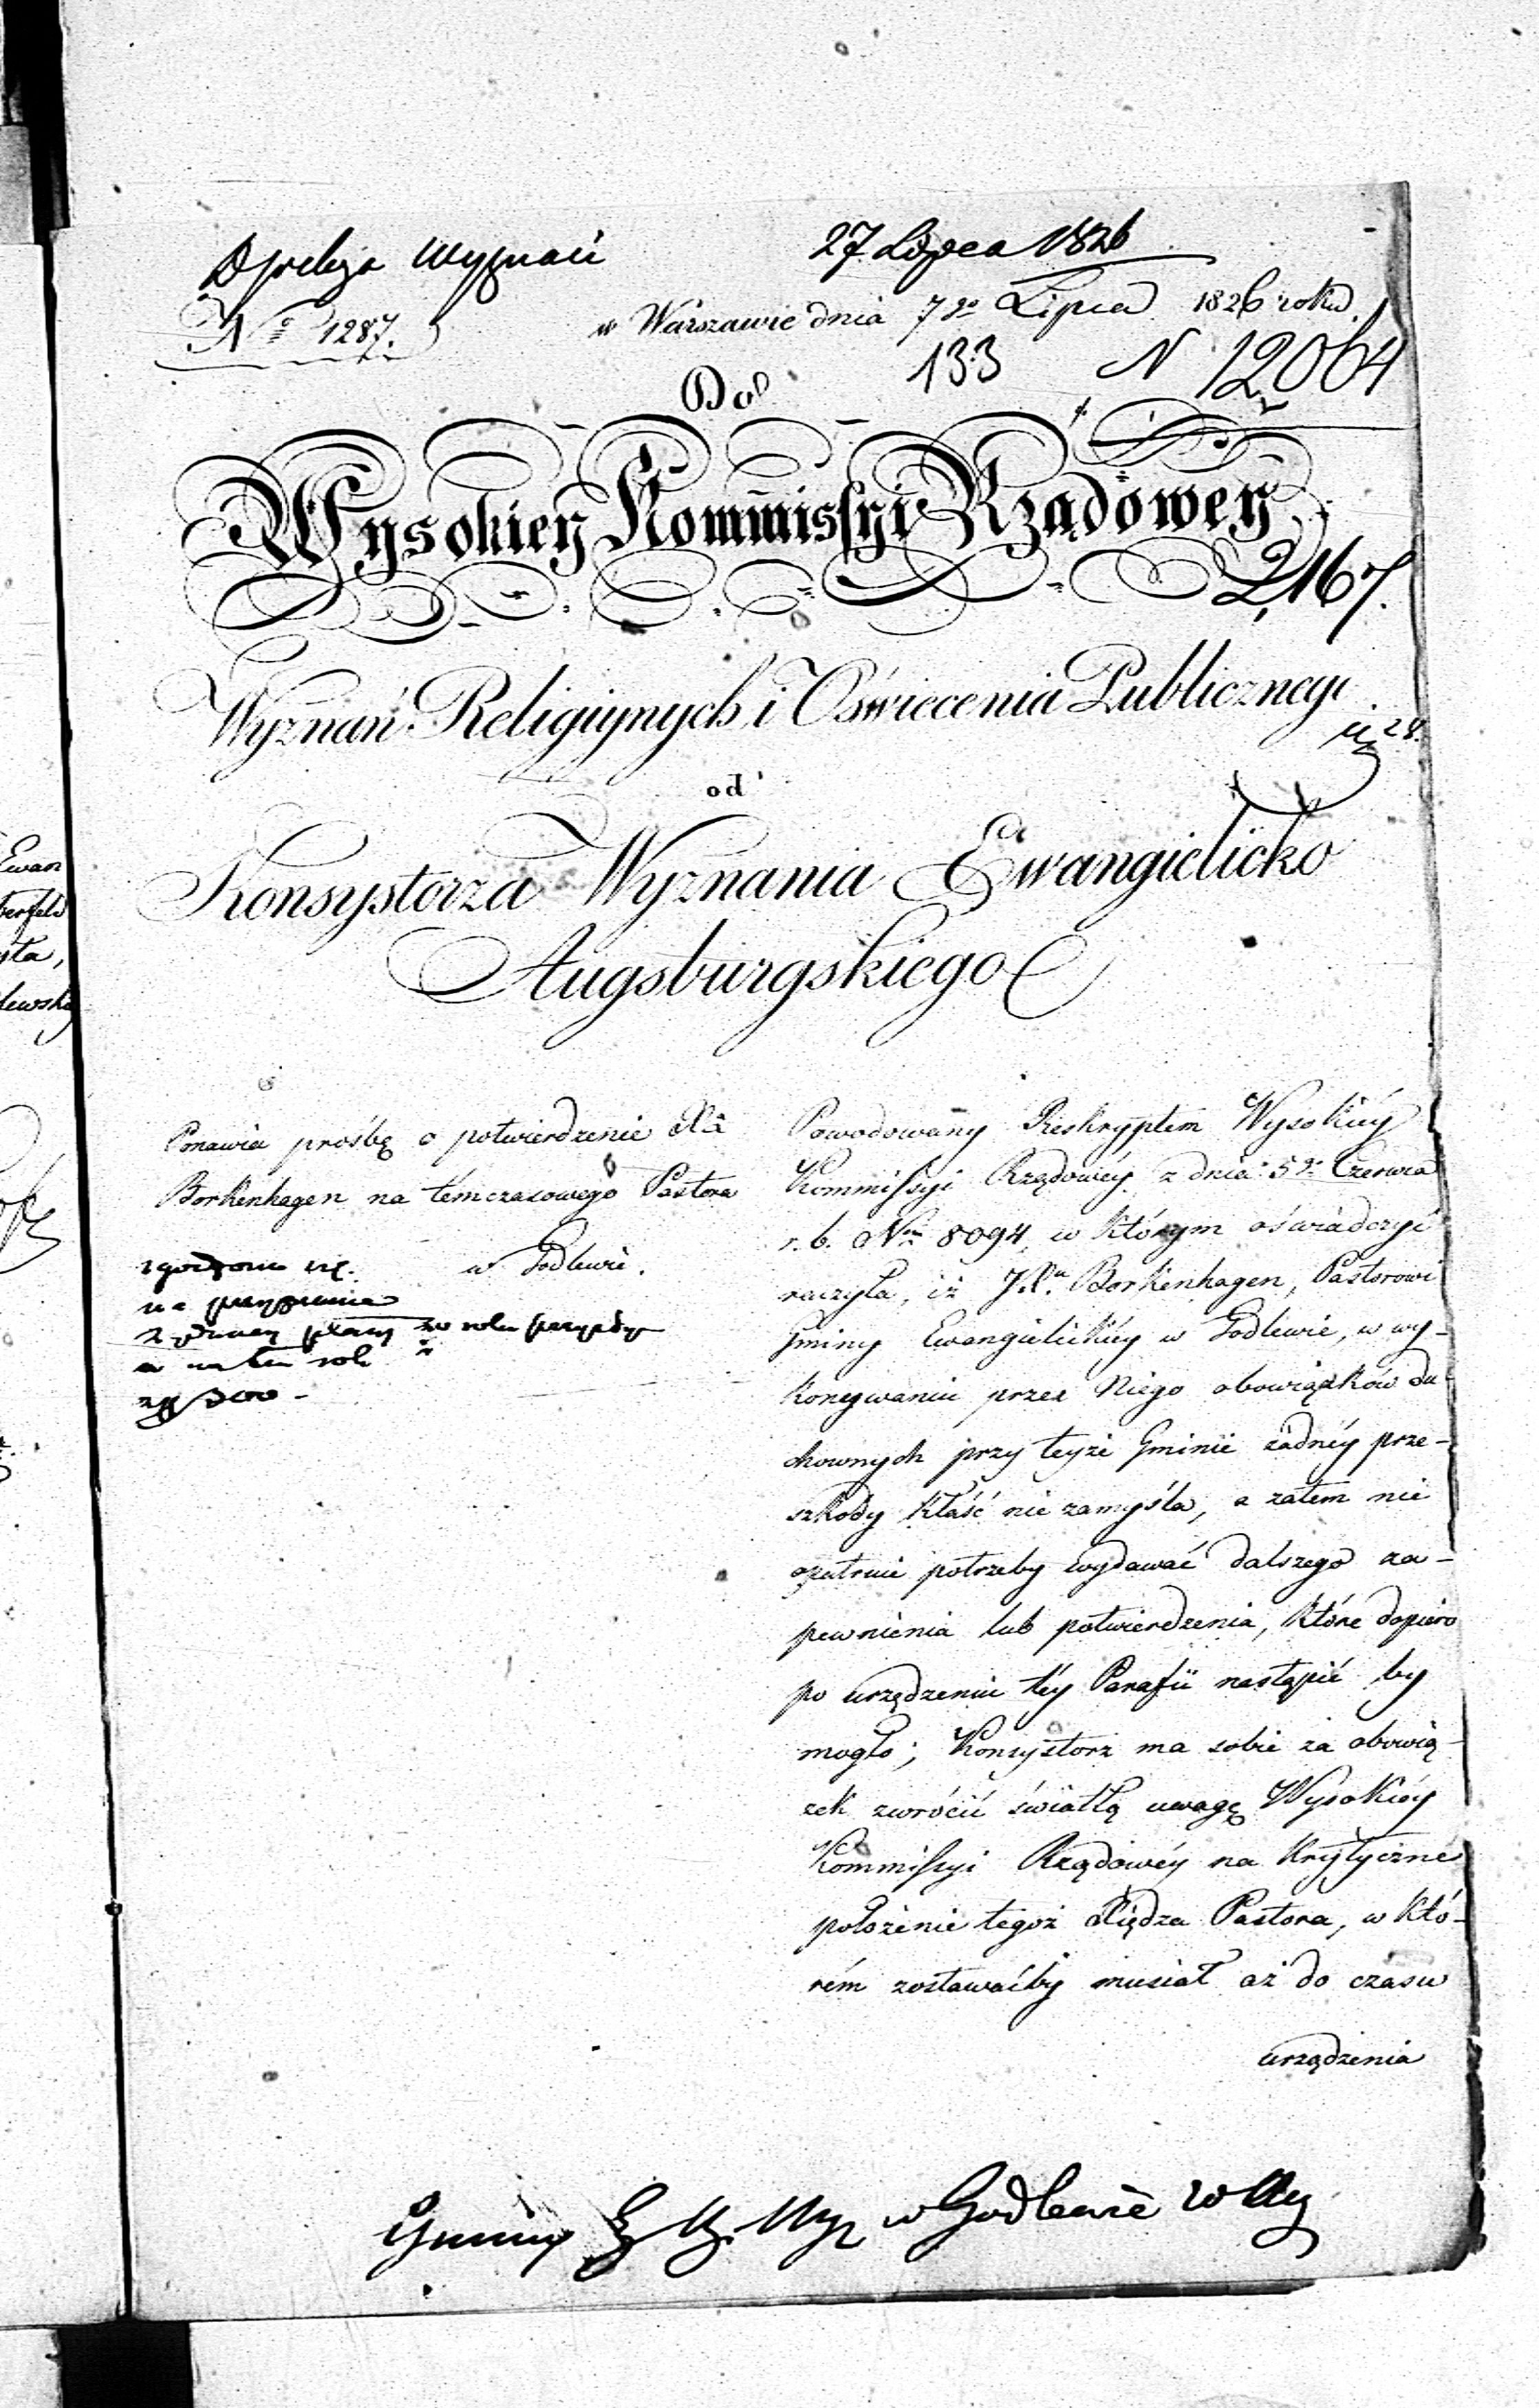 27 Lipca 1826
Wyznań
No 1287.
w Warszawie dnia 7go Lipca 1826 roku.
133 N 12064
Do
Wysokiey Kommissyi Rządowey
2,167.
Wyznań Religiynych i Oświecenia Publicznego
28.
od
Konsystorza Wyznania Ewangielicko
Augsburgskiego
Ponawia prośbę o potwierdzenie Xa
Borkenhagen na témczasowego Pastora
w Godlewie.
na
a na ten rok
Powodowany Reskryptem Wysokiéy
Kommissyi Rządowéy z dnia 5go Czerwca
r. b. Nro 8094, w którym oświadczyć
raczyła, iż JXu Borkenhagen, Pastorowi
Gminy Ewangielickiéy w Godlewie, w wy-
konywaniu przez Niego obowiązków du-
chownych przy teyże Gminie żadnéy prze-
szkody kłaść nie zamyśla, a zatem nie
upatruie potrzeby wydawać dalszego za-
pewnienia lub potwierdzenia, które dopiero
po urządzeniu téy Parafii nastąpić by
mogło; Konsystorz ma sobie za obowią-
zek zwrócić światłą uwagę Wysokiéy
Kommissyi Rządowéy na krytyczne
położenie tegoż Xiędza Pastora, w któ-
rém zostawaćby musiał aż do czasu
urządzenia
Gminy w Godlewie
Ewan
berfeld
sta,
lewski